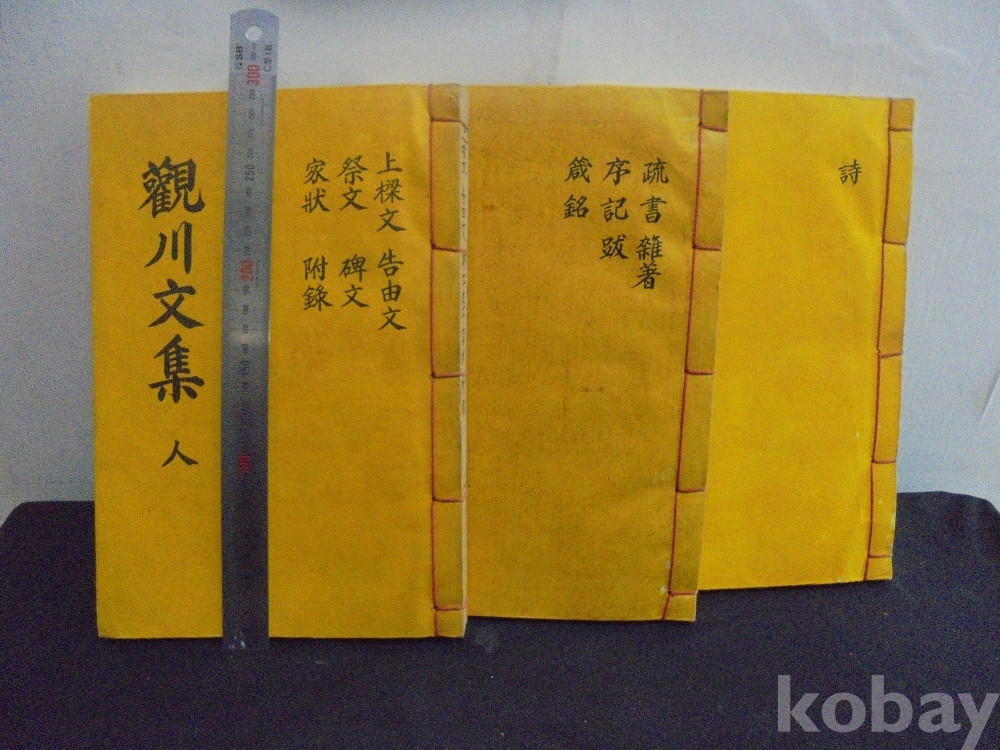 觀川文集 人
上樑文 告由文
祭文 碑文
家狀 附錄
疏書 雜著
序記跋
箴銘
詩
300
250
200
150
100
kobay